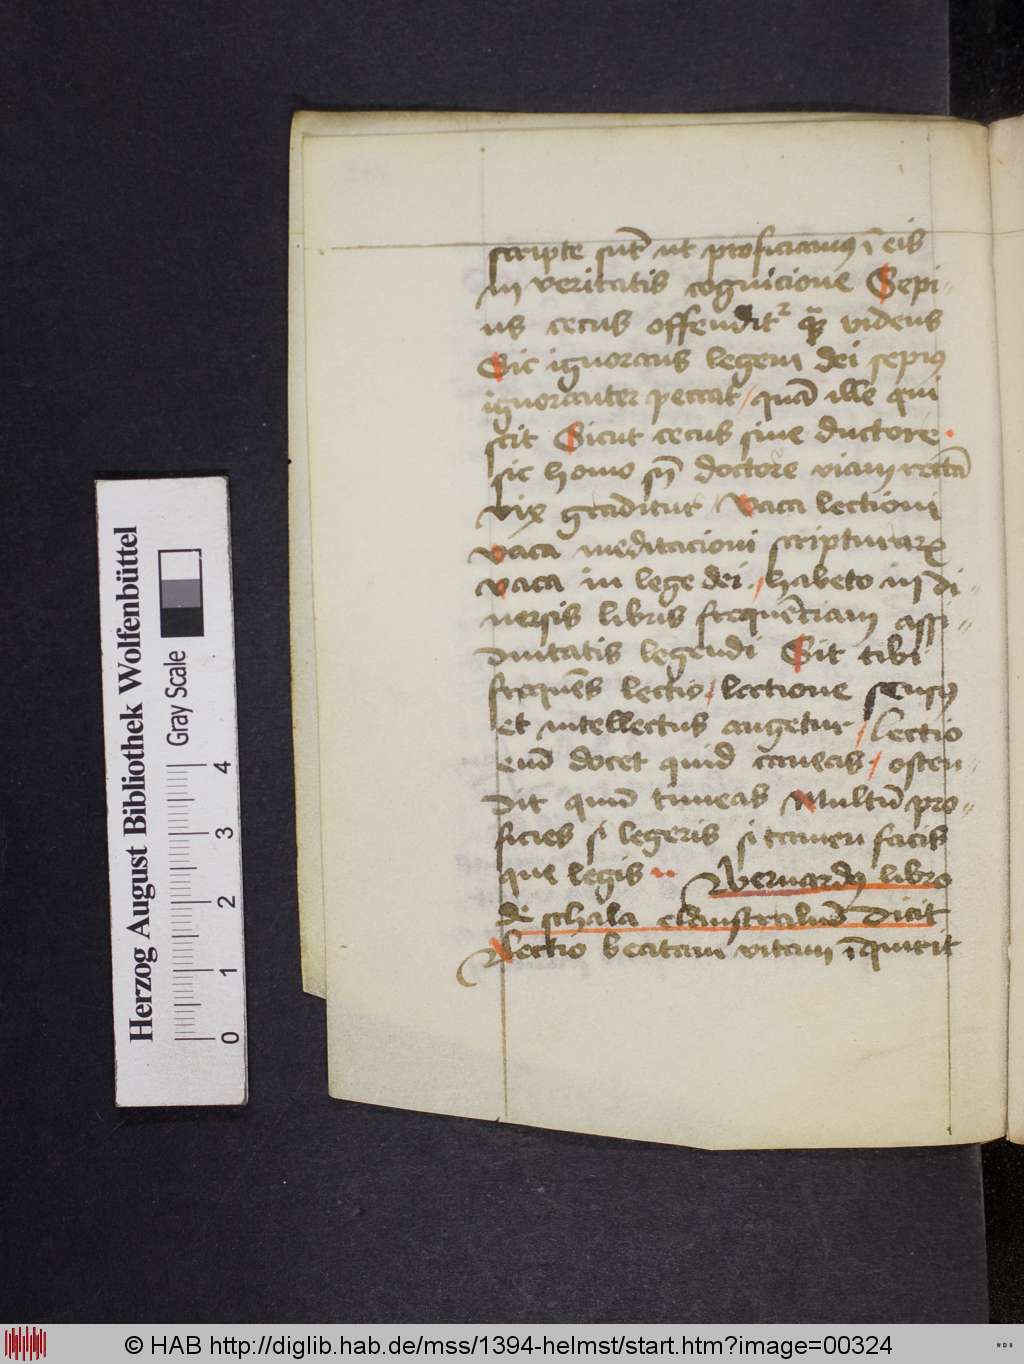 scripte sūt ut proficiamꝯ ī eis
in veritatis cognicione Sepi-
us cecus offendit² qͣꝫ videns
Sic ignorans legem dei sepiꝯ
ignoranter peccat / quā ille qui
scit Sicut cecus sine ductore .
sic homo sn̄ doctore viam rectā
vix graditur Vaca lectioni
vaca meditacioni scripturarꝝ
vaca in lege dei / habeto in di-
uersis libris frequēciam assi-
duitatis legendi Sit tibi
frequēs lectio / lectione sensꝯ
et intellectus augetur / lectio
enī docet quid caueas / osten-
dit quid timeas Multū pro-
ficies si legeris si tamen facis
que legis .. Bernardꝯ libro
de schala claustraliū dicit
Lectio beatam vitam īquirit
Herzog August Bibliothek Wolfenbüttel
Gray Scale
0 1 2 3 4
© HAB http://diglib.hab.de/mss/1394-helmst/start.htm?image=00324